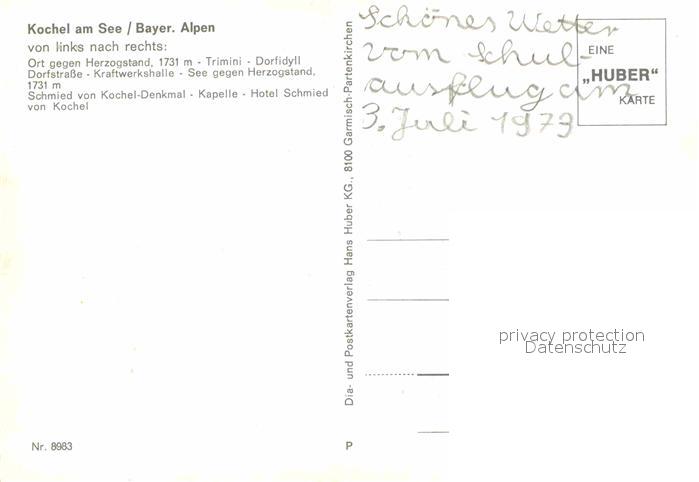 Kochel am See / Bayer. Alpen
von links nach rechts:
Ort gegen Herzogstand, 1731 m - Trimini - Dorfidyll
Dorfstraße - Kraftwerkshalle - See gegen Herzogstand,
1731 m
Schmied von Kochel-Denkmal - Kapelle - Hotel Schmied
von Kochel
Nr. 8983
Dia- und Postkartenverlag Hans Huber KG., 8100 Garmisch-Partenkirchen
P
Schönes Wetter
vom Schul-
ausflug am
3. Juli 1979
EINE
„HUBER“
KARTE
privacy protection
Datenschutz